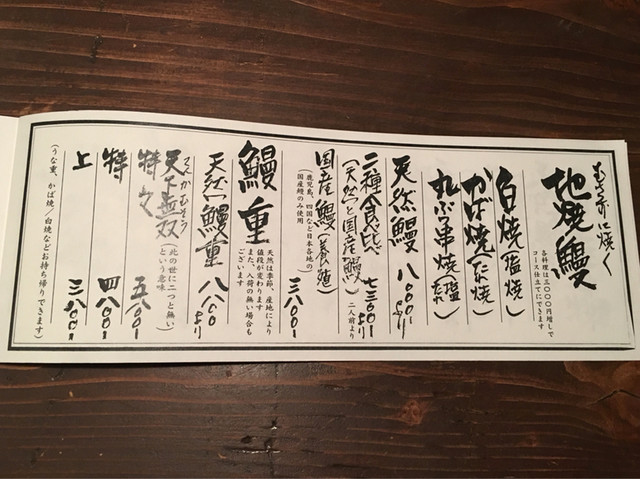 むさぼに焼く
地焼鰻
各料理は三〇〇〇円増しで
コース仕立てにできます
白焼(塩焼)
かば焼(たれ焼)
丸ぶし串焼(塩たれ)
天然鰻 八〇〇〇より
二種食べ比べ 七三〇〇より
(天然と国産鰻) 二人前より
国産鰻(養殖) 三八〇〇
(鹿児島、四国など日本各地の
国産鰻のみ使用)
鰻重
天然は季節、産地により
値段が変わります
また、入荷の無い場合も
ございます
天然鰻重 八八〇〇より
てんかむそう
天下無双 (此の世に二つと無い
という意味)
特 五八〇〇
特 四八〇〇
上 三八〇〇
(うな重、かば焼/白焼などお持ち帰りできます)